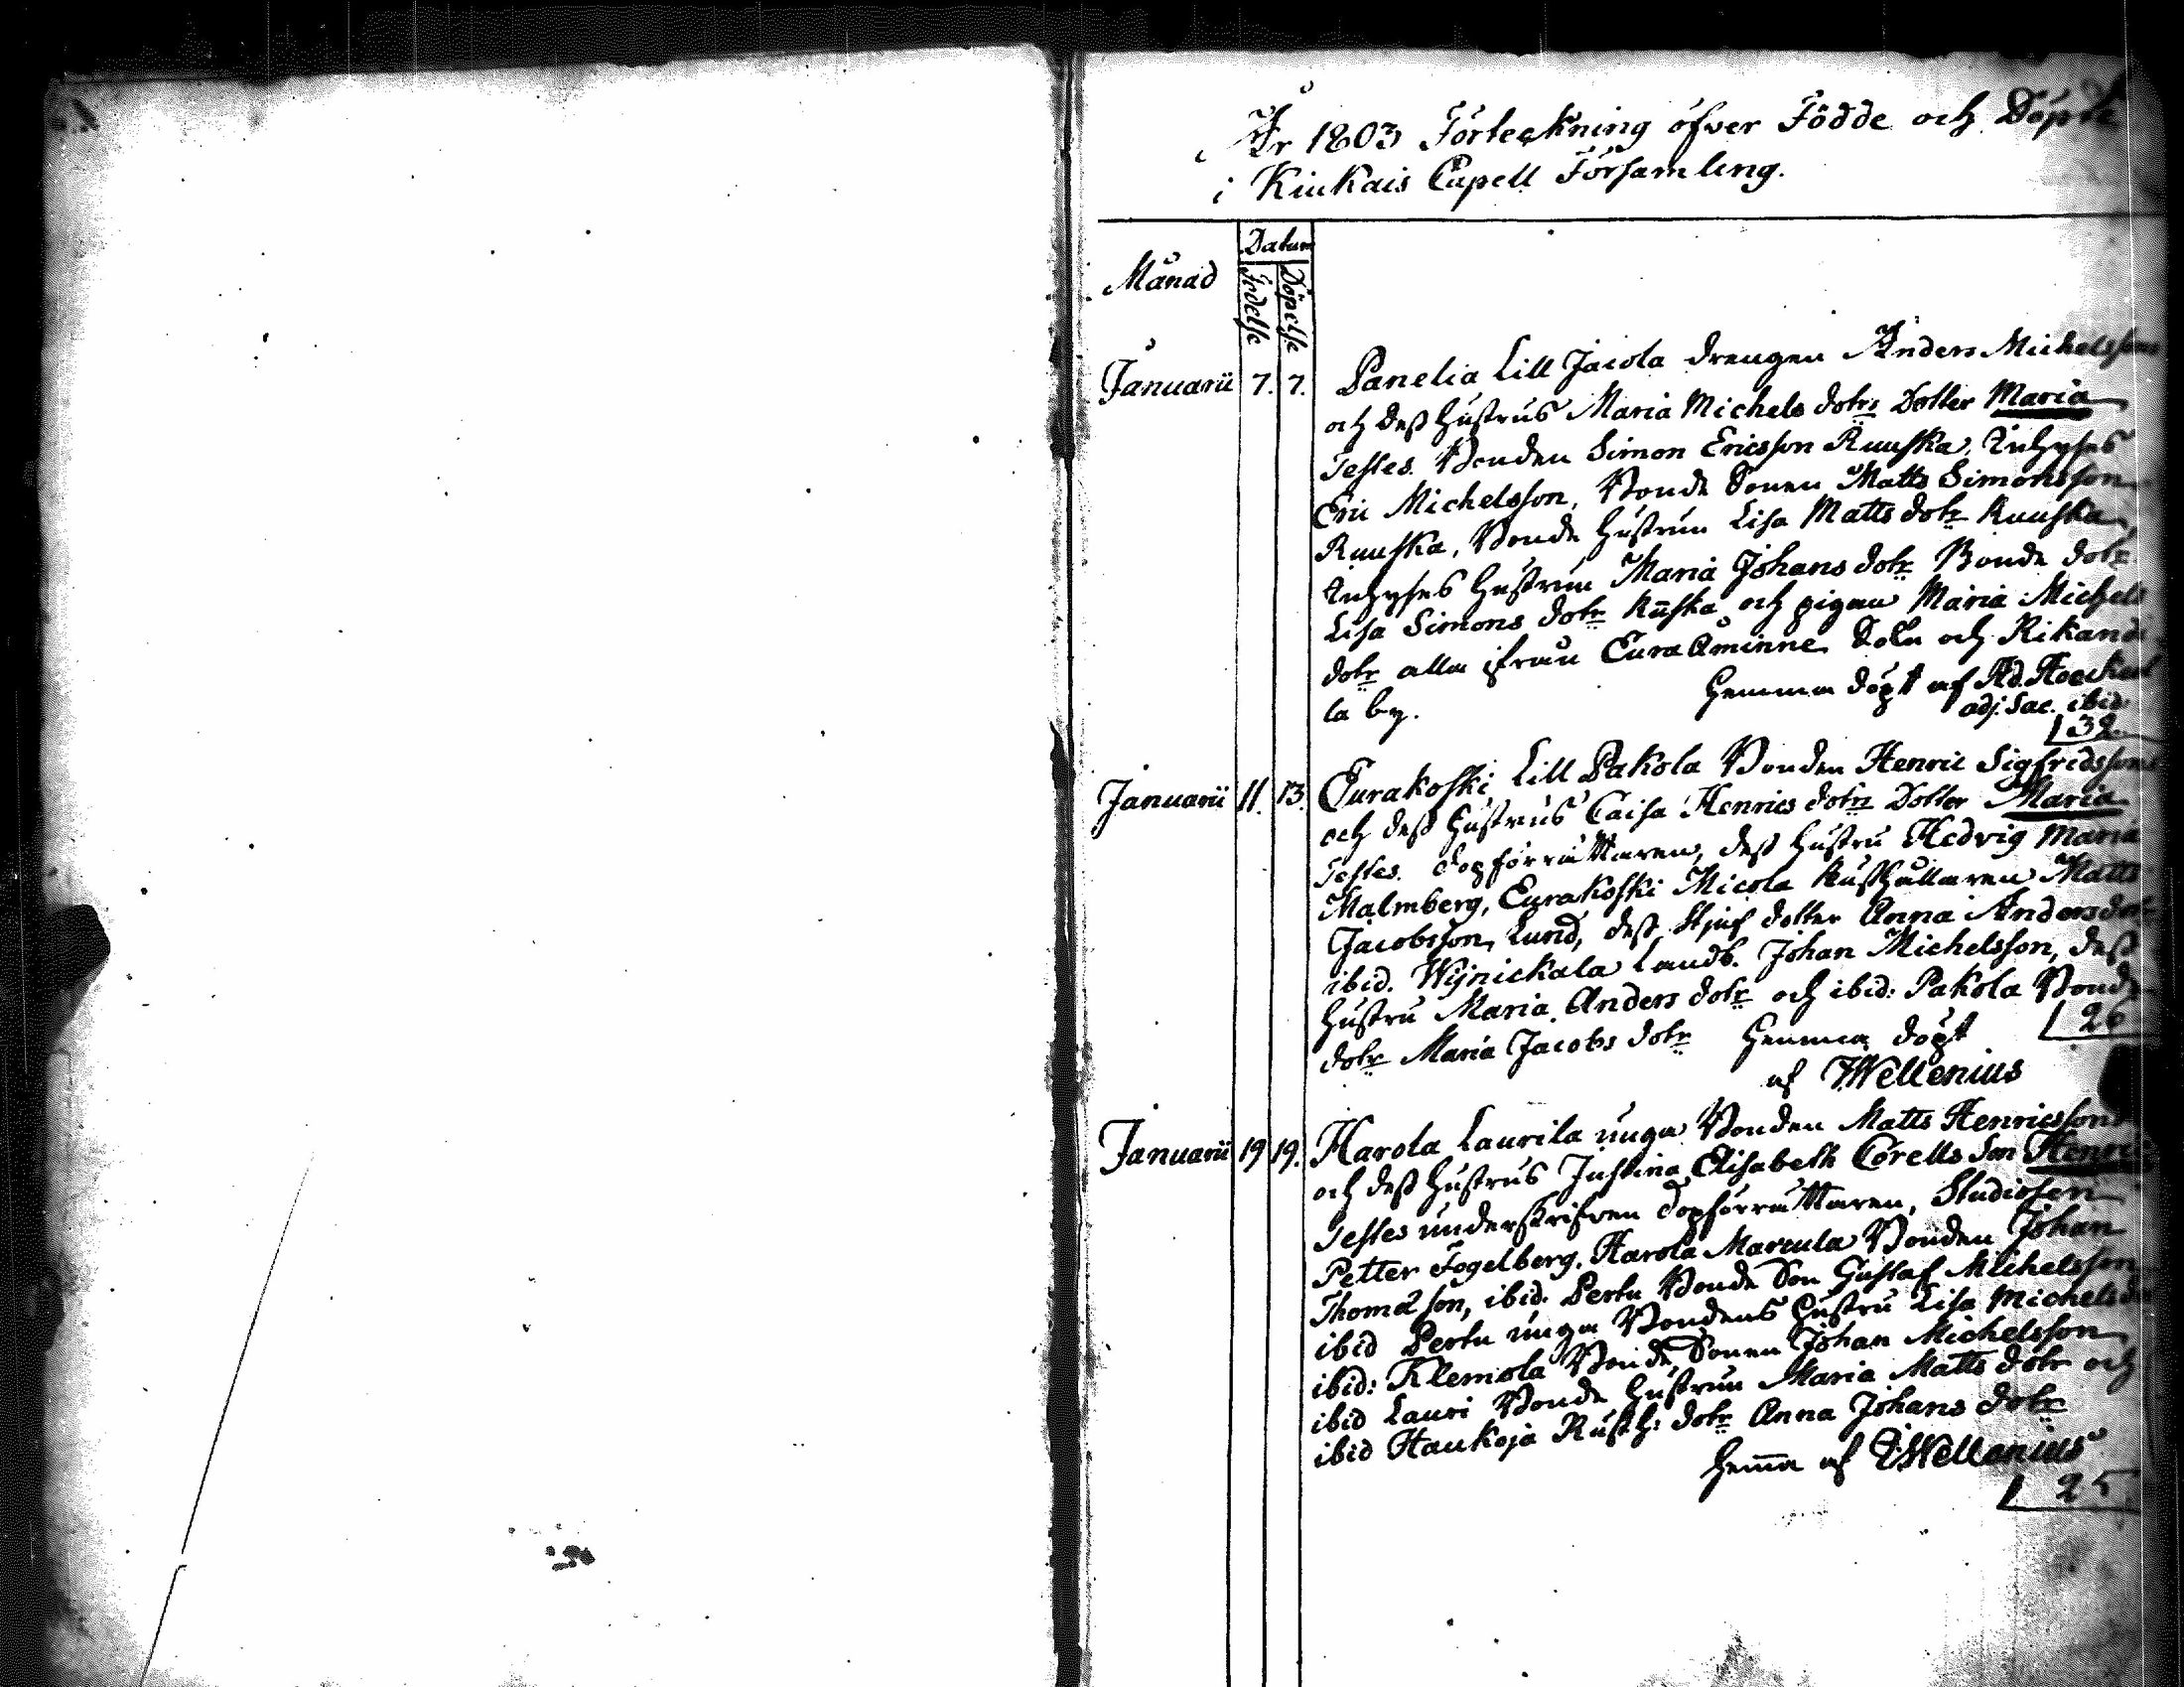 År 1803 Förteckning öfver Födde och Döpte
i Kiukais Capell Församling.
Månad
Datum
Födelse
Döpelse
Januarii 7. 7. Panelia Lill Jacola drengen Anders Michelssons
och dess hustrus Maria Michels dotrs Dotter Maria
Testes. Bonden Simon Ericsson Ruuska, Inhyses
Eric Michelsson, Bonde Sonen Matts Simonsson
Ruuska, Bonde hustrun Lisa Matts dotr Ruuska,
Inhyses hustrun Maria Johans dotr Bonde dotr
Lisa Simons dotr Ruska och pigan Maria Michels
dotr alla ifrån Eura Åminne Sokn och Rikandi
la by. Hemma döpt af Ad.
adj. Sac. ibid.
32.
Januarii 11. 13. Eurakoski Lill Pakola Bonden Henric Sigfridssons
och dess hustrus Caisa Henrics dotrs Dotter Maria
Testes. Dopförrättaren, dess hustru Hedvig Maria
Malmberg, Eurakoski Micola Rusthållaren Matts
Jacobsson Lund, dess Stjuf dotter Anna Andersdotr
ibid. Wijnickala Landb. Johan Michelsson, dess
hustru Maria Anders dotr och ibid: Pakola Bonde
dotr Maria Jacobs dotr Hemma döpt
26
af Wellenius
Januarii 19 19. Harola Laurila unga Bonden Matts Henricssons
och dess hustrus Justina Elisabeth Corells Son Henric
Testes underskrifven Dopförrättaren, Studiosen
Petter Fogelberg, Harola Marcula Bonden Johan
Thomasson, ibid. Pertu Bonde Son Gustaf Michelsson
ibid Pertu unga Bondens hustru Lisa Michelsdr
ibid: Klemola Bonde Sonen Johan Michelsson
ibid Lauri Bonde hustrun Maria Matts dotr och
ibid Haukoja Rusth: dotr Anna Johans dotr
Hem̄a af Wellenius
25